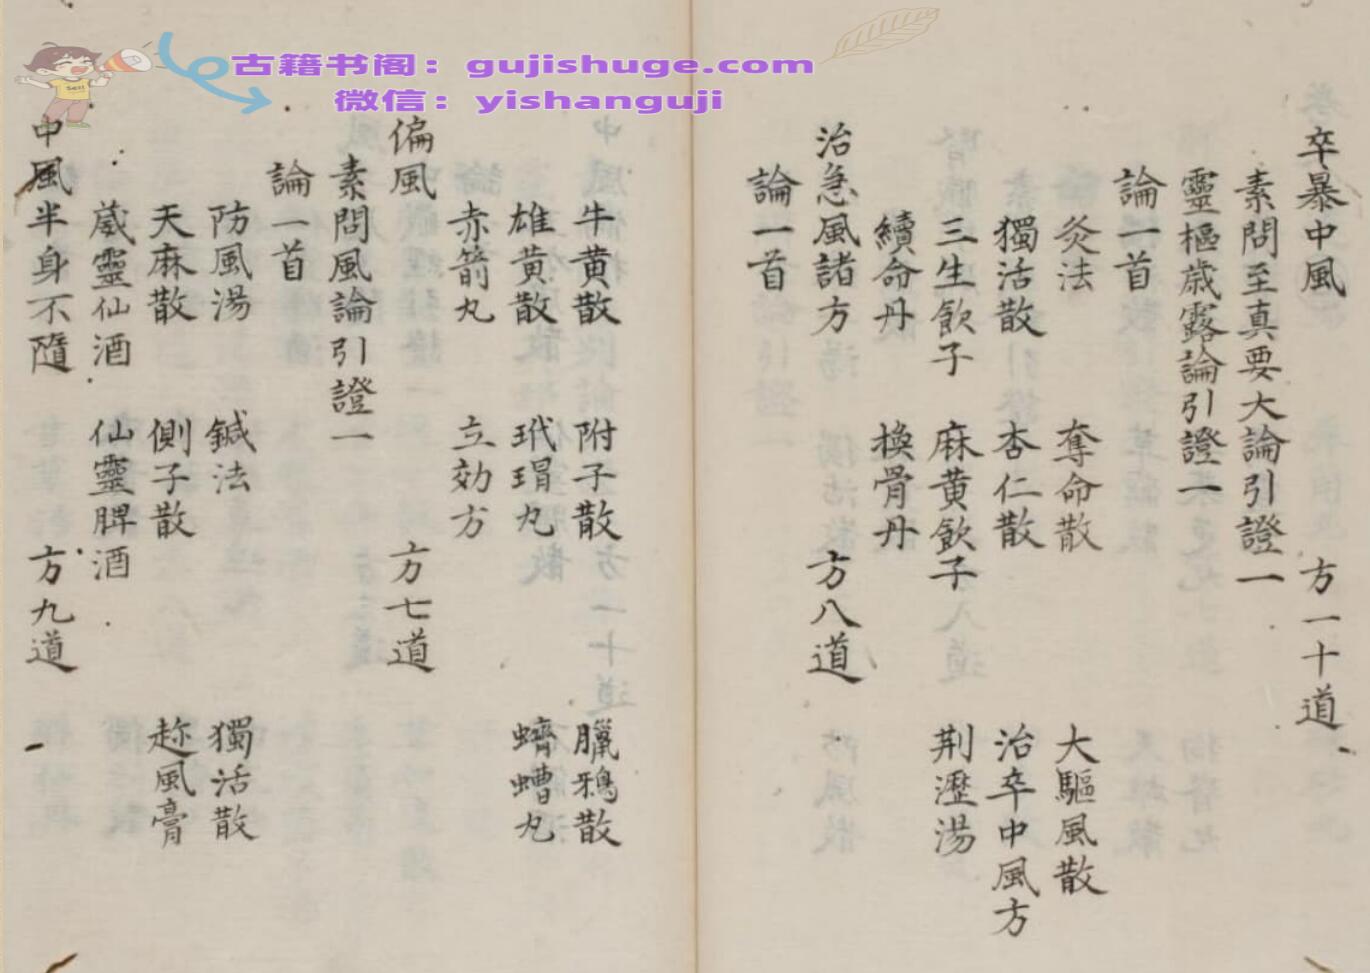 古籍书阁：gujishuge.com
微信：yishanguji
卒暴中風 方一十道
素問至真要大論引證一
靈樞歲露論引證一
論一首
灸法 奪命散 大驅風散
獨活散 杏仁散 治卒中風方
三生飲子 麻黄飲子 荆瀝湯
續命丹 換骨丹
治急風諸方 方八道
論一首
牛黄散 附子散 臘鴉散
雄黄散 玳瑁丸 蠐螬丸
赤箭丸 立効方
偏風 方七道
素問風論引證一
論一首
防風湯 鍼法 獨活散
天麻散 側子散 趂風膏
葳靈仙酒 仙靈脾酒
中風半身不隨 方九道